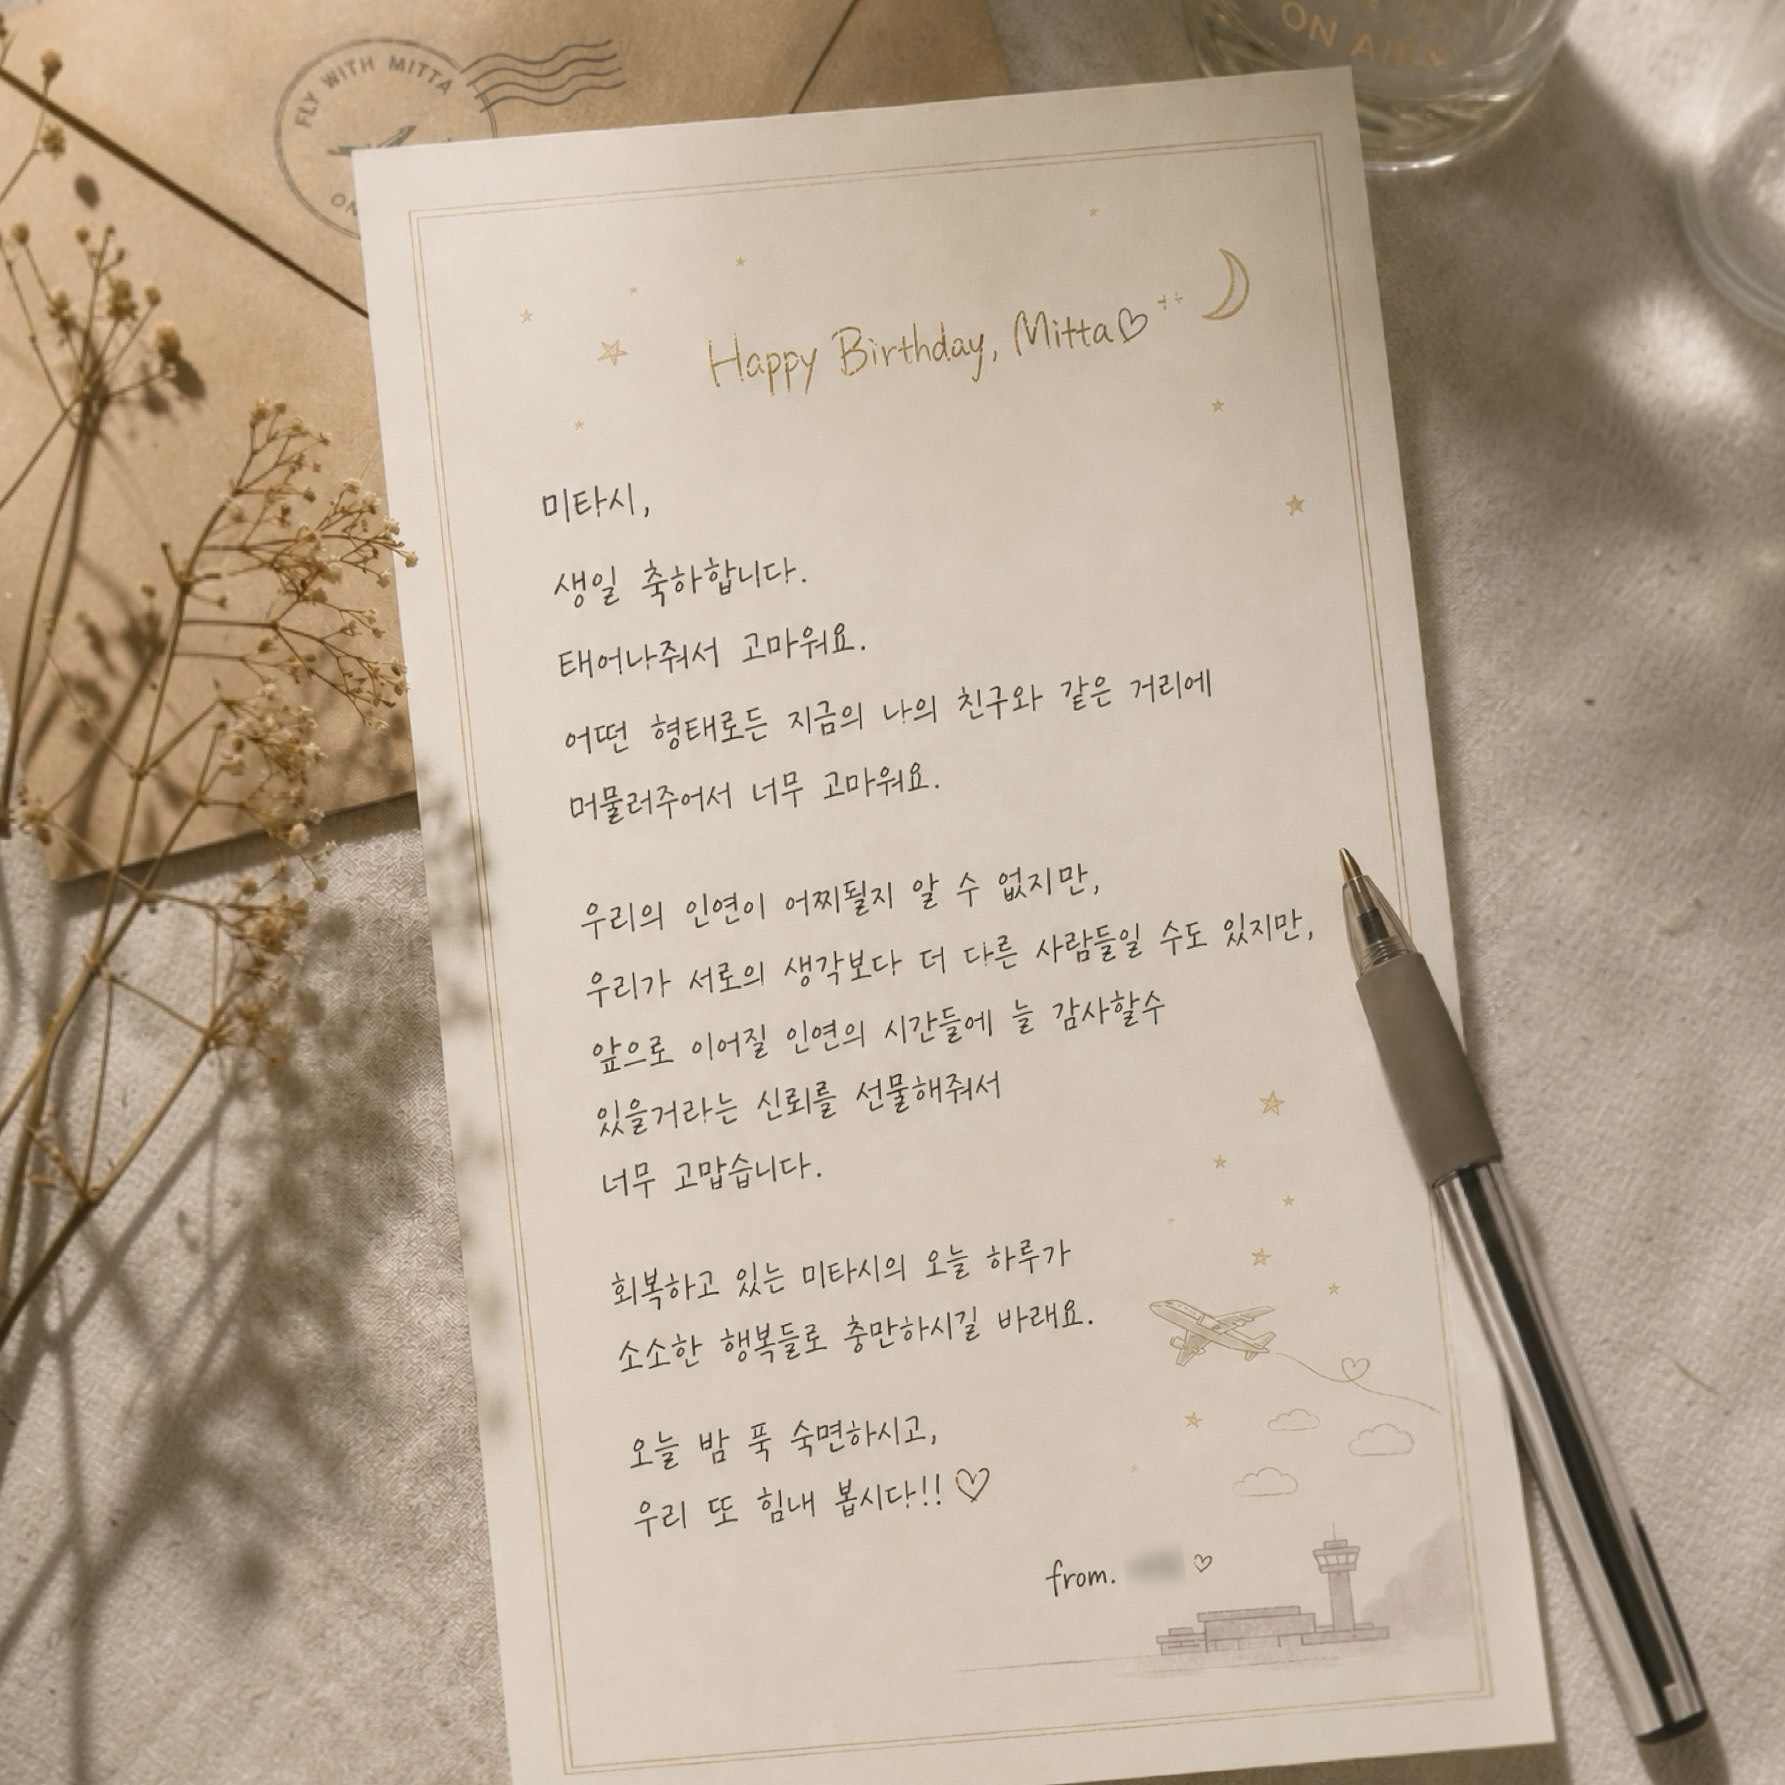 FLY WITH MITTA
ON
ON AIR
Happy Birthday, Mitta♡
미타시,
생일 축하합니다.
태어나줘서 고마워요.
어떤 형태로든 지금의 나의 친구와 같은 거리에
머물러주어서 너무 고마워요.
우리의 인연이 어찌될지 알 수 없지만,
우리가 서로의 생각보다 더 다른 사람들일 수도 있지만,
앞으로 이어질 인연의 시간들에 늘 감사할수
있을거라는 신뢰를 선물해줘서
너무 고맙습니다.
회복하고 있는 미타시의 오늘 하루가
소소한 행복들로 충만하시길 바래요.
오늘 밤 푹 숙면하시고,
우리 또 힘내 봅시다!! ♡
from. ♡